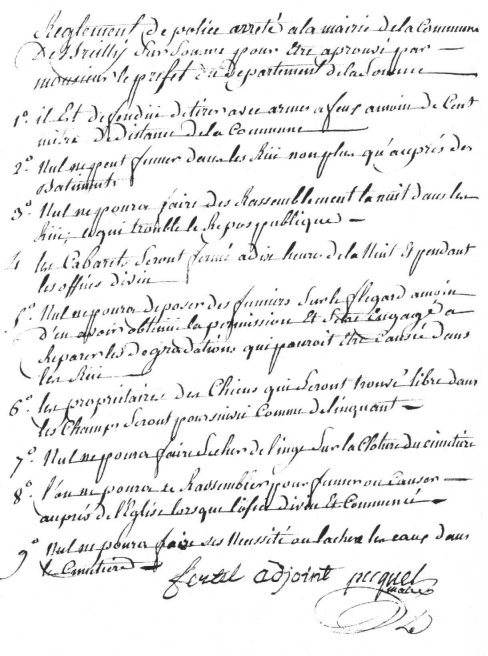 Reglement de police arreté a la mairie de la Commune
De Breilly Sur Somme pour Etre aprouvé par
monsieur le prefet du Departement de la Somme
1º. il Est defendue de tirer avec armes a feux amoin de Cent
mètre de distance de la Commune
2º. Nul ne peut fumer dans les Rüe non plus qu'auprés des
Batiments
3º. Nul ne poura faire des Rassemblement la nuit dans les
Rüe, ce qui trouble le Repos publique
4 les Cabarets Seront fermé a dix heure de la Nuit Et pendant
les offices divin
5º. Nul ne poura deposer des fumiers Sur le flegard amoin
d'en avoir obtenüe la permission Et s'etre engagé a
Reparer les Degradations qui pouroit Etre Causée dans
les Rüe
6º. les propriétaires des Chiens qui Seront trouvé libre dans
les Champs Seront poursuivie Comme delinquant
7º. Nul ne poura faire Secher de linge Sur la Cloture du Cimetière
8º. l'on ne poura se Rassembler pour fumer ou Causer
auprés de l'Eglise lorsque l'ofice divin Est Commencé
9º. Nul ne poura faire ses Neussité ou lacher les eaux dans
le Cimetière
fertel adjoint picquet
maire